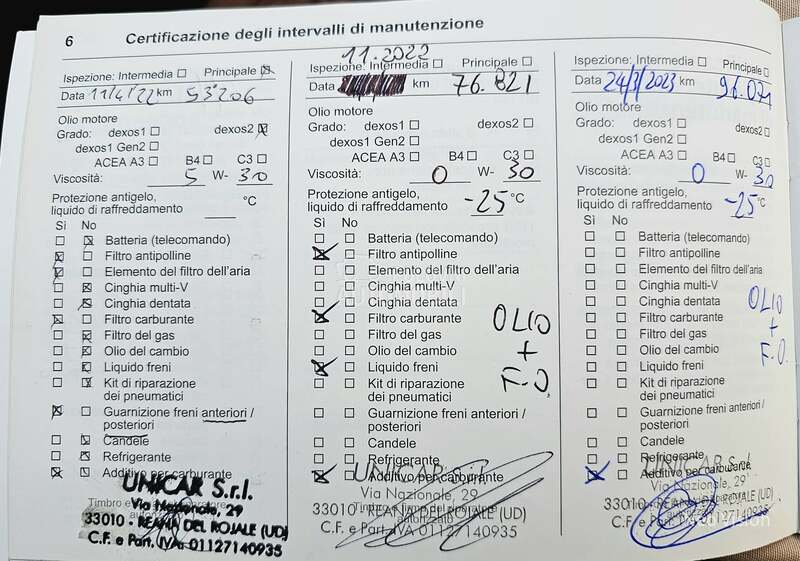 6 Certificazione degli intervalli di manutenzione
Ispezione: Intermedia Principale
Data 11/4/22 km 53'206
Olio motore
Grado: dexos1 dexos2
dexos1 Gen2
ACEA A3 B4 C3
Viscosità: 5 W- 30
Protezione antigelo,
liquido di raffreddamento °C
Sì No
Batteria (telecomando)
Filtro antipolline
Elemento del filtro dell'aria
Cinghia multi-V
Cinghia dentata
Filtro carburante
Filtro del gas
Olio del cambio
Liquido freni
Kit di riparazione
dei pneumatici
Guarnizione freni anteriori /
posteriori
Candele
Refrigerante
Additivo per carburante
UNICAR S.r.l.
Via Nazionale, 29
33010 - REANA DEL ROJALE (UD)
C.F. e Part. IVA: 01127140935
11.2022
Ispezione: Intermedia Principale
Data km 76.821
Olio motore
Grado: dexos1 dexos2
dexos1 Gen2
ACEA A3 B4 C3
Viscosità: 0 W- 30
Protezione antigelo,
liquido di raffreddamento -25 °C
Sì No
Batteria (telecomando)
Filtro antipolline
Elemento del filtro dell'aria
Cinghia multi-V
Cinghia dentata
Filtro carburante OLIO
Filtro del gas
Olio del cambio +
Liquido freni
Kit di riparazione F.O.
dei pneumatici
Guarnizione freni anteriori /
posteriori
Candele
Refrigerante
Additivo per carburante
UNICAR S.r.l.
Via Nazionale, 29
33010 - REANA DEL ROJALE (UD)
C.F. e Part. IVA: 01127140935
Ispezione: Intermedia Principale
Data 24/3/2023 km 96.071
Olio motore
Grado: dexos1 dexos2
dexos1 Gen2
ACEA A3 B4 C3
Viscosità: 0 W- 30
Protezione antigelo,
liquido di raffreddamento -25 °C
Sì No
Batteria (telecomando)
Filtro antipolline
Elemento del filtro dell'aria
Cinghia multi-V
Cinghia dentata OLIO
Filtro carburante
Filtro del gas +
Olio del cambio F.O.
Liquido freni
Kit di riparazione
dei pneumatici
Guarnizione freni anteriori /
posteriori
Candele
Refrigerante
Additivo per carburante
UNICAR S.r.l.
Via Nazionale, 29
33010 - REANA DEL ROJALE (UD)
C.F. e Part. IVA: 01127140935